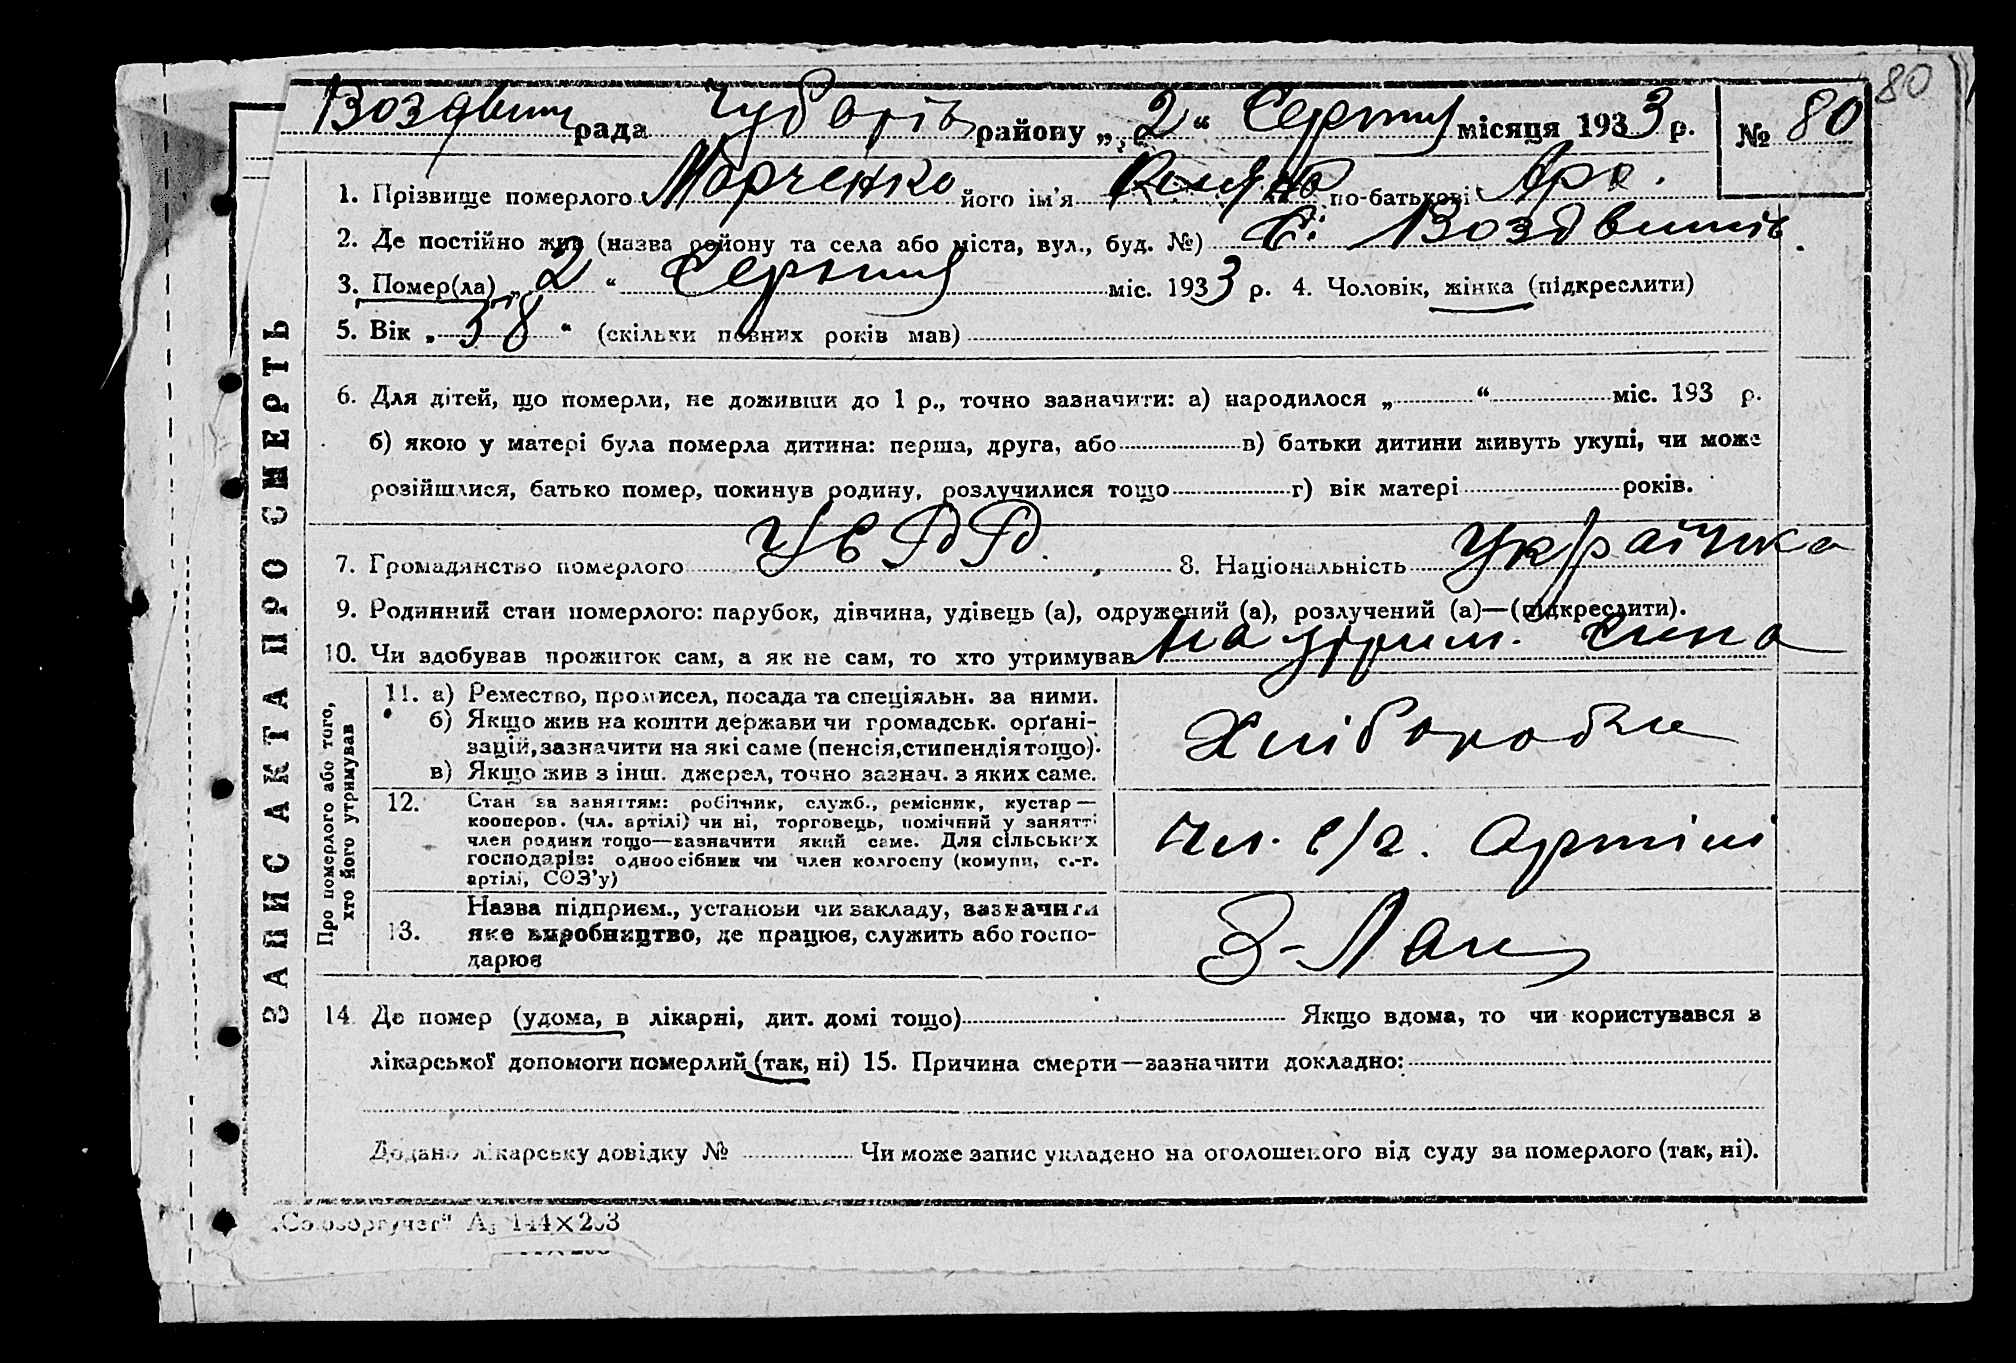 80
Воздвиж рада Чубарів району „ 2 “ Серпня місяця 1933 р. № 80
1. Прізвище померлого Марченко його ім'я по-батькові
2. Де постійно жив (назва району та села або міста, вул., буд. №) С. Воздвижів.
3. Помер(ла) „ 2 “ Серпня міс. 1933 р. 4. Чоловік, жінка (підкреслити)
5. Вік „ 38 “ (скільки повних років мав)
6. Для дітей, що померли, не доживши до 1 р., точно зазначити: а) народилося „ “ міс. 193 р.
б) якою у матері була померла дитина: перша, друга, або в) батьки дитини живуть укупі, чи може
розійшлися, батько помер, покинув родину, розлучилися тощо г) вік матері років.
7. Громадянство померлого УСРР 8. Національність Українка
9. Родинний стан померлого: парубок, дівчина, удівець (а), одружений (а), розлучений (а)—(підкреслити).
10. Чи здобував прожиток сам, а як не сам, то хто утримував на утрим. сина
ЗАПИС АКТА ПРО СМЕРТЬ
Про померлого або того,
хто його утримував
11. а) Ремество, промисел, посада та спеціяльн. за ними.
б) Якщо жив на кошти держави чи громадськ. орґані-
зацій, зазначити на які саме (пенсія, стипендія тощо).
в) Якщо жив з інш. джерел, точно зазнач. з яких саме.
Хлібороби
12. Стан за заняттям: робітник, служб., ремісник, кустар —
кооперов. (чл. артілі) чи ні, торговець, помічний у занятті
член родини тощо—зазначити який саме. Для сільських
господарів: одноосібник чи член колгоспу (комуни, с.-г.
артілі, СОЗ'у)
Чл. с/г. Артілі
13. Назва підприєм., установи чи закладу, зазначити
яке виробництво, де працює, служить або госпо-
дарює
14. Де помер (удома, в лікарні, дит. домі тощо) Якщо вдома, то чи користувався з
лікарської допомоги померлий (так, ні) 15. Причина смерти—зазначити докладно:
Додано лікарську довідку № Чи може запис укладено на оголошеного від суду за померлого (так, ні).
„Союзоргучет“ А₅ 144×203